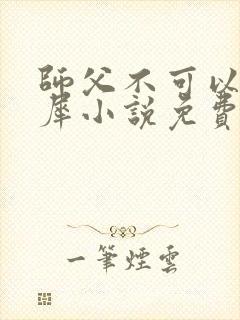 師父不可以
犀小說免費
一筆煙雲